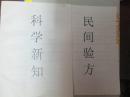 科学新知
民间验方